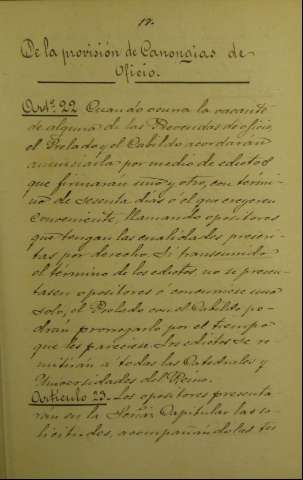 17.
De la provisión de Canongías de
Oficio.
Artº. 22 Cuando ocurra la vacante
de alguna de las Prevendas de oficio,
el Prelado y el Cabildo acordarán
anunciarla por medio de edictos
que firmaran uno y otro, con térmi-
no de sesenta días ó el que creyeren
conveniente, llamando opositores
que tengan las cualidades prescri-
tas por derecho. Si transcurrido
el término de los edictos no se presen-
tasen opositores ó concurriese uno
solo, el Prelado con el Cabildo po-
drán prorrogarlo por el tiempo
que les parezca. Los edictos se re-
mitirán á todas las Catedrales y
Universidades del Reino.
Artículo 23. Los opositores presenta-
rán en la Secretª Capitular las so-
licitudes, acompañándolas